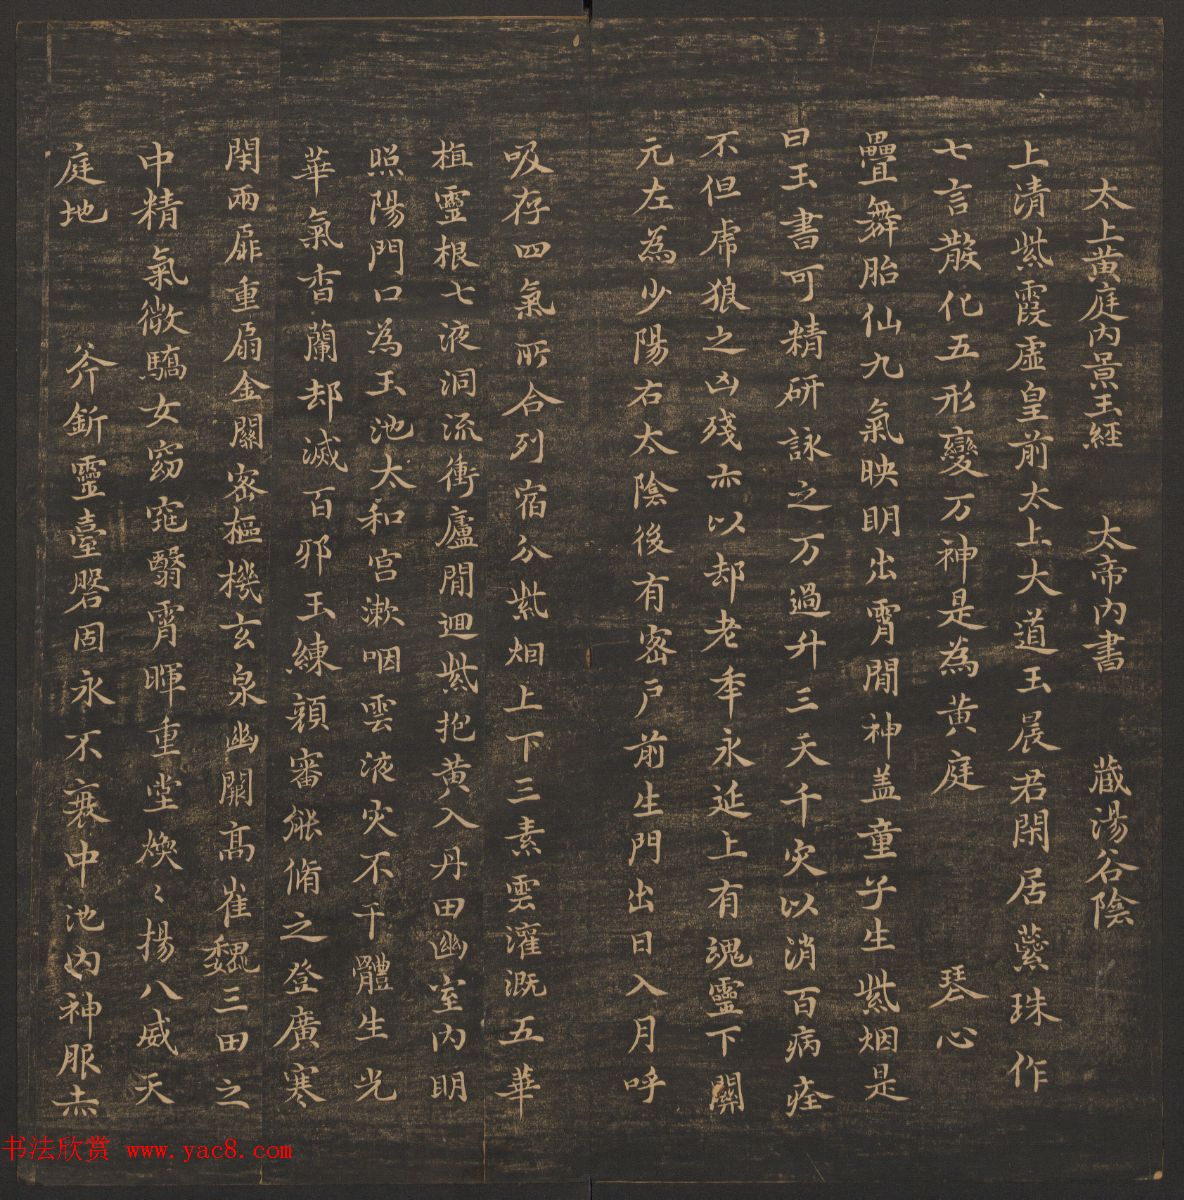 太上黃庭內景玉經 太帝內書 藏湯谷陰
上清紫霞虛皇前太上大道玉晨君閑居蘂珠作
七言散化五形變万神是為黃庭 琴心
疊舞胎仙九氣映明出霄間神盖童子生紫烟是
曰玉書可精研詠之万過升三天千灾以消百病痊
不但虎狼之凶殘亦以却老年永延上有魂靈下關
元左為少陽右太陰後有密戶前生門出日入月呼
吸存四氣所合列宿分紫烟上下三素雲灌溉五華
植靈根七液洞流衝廬間迴紫抱黃入丹田幽室內明
照陽門口為玉池太和宫漱咽雲液灾不干體生光
華氣香蘭却滅百邪玉練顏審能脩之登廣寒
閑兩扉重扇金關密樞機玄泉幽闕高崔巍三田之
中精氣微驕女窈窕翳霄暉重堂煥〻揚八威天
庭地 斧釿靈臺磐固永不衰中池內神服赤
书法欣赏 www.yac8.com